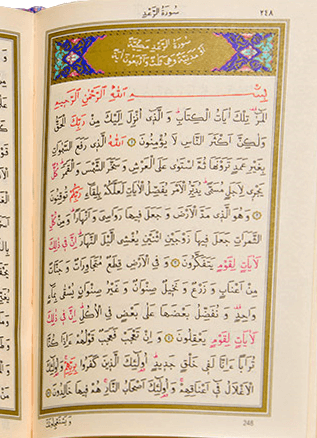 سُورَةُ الرَّعْدِ
٢٤٨
سُورَةُ الرَّعْدِ مَكِّيَّةٌ
اَوْ مَدَنِيَّةٌ وَهِيَ ثَلَاثٌ وَاَرْبَعُونَ اٰيَةً
بِسْمِ اللّٰهِ الرَّحْمٰنِ الرَّحِيمِ
الٓمٓرٰ تِلْكَ اٰيَاتُ الْكِتَابِ وَالَّذِي اُنْزِلَ اِلَيْكَ مِنْ رَبِّكَ الْحَقُّ
وَلٰكِنَّ اَكْثَرَ النَّاسِ لَا يُؤْمِنُونَ ١ اَللّٰهُ الَّذِي رَفَعَ السَّمٰوَاتِ
بِغَيْرِ عَمَدٍ تَرَوْنَهَا ثُمَّ اسْتَوٰى عَلَى الْعَرْشِ وَسَخَّرَ الشَّمْسَ وَالْقَمَرَ كُلٌّ
يَجْرِي لِاَجَلٍ مُسَمًّى يُدَبِّرُ الْاَمْرَ يُفَصِّلُ الْاٰيَاتِ لَعَلَّكُمْ بِلِقَاءِ رَبِّكُمْ تُوقِنُونَ
٢ وَهُوَ الَّذِي مَدَّ الْاَرْضَ وَجَعَلَ فِيهَا رَوَاسِيَ وَاَنْهَارًا وَمِنْ كُلِّ
الثَّمَرَاتِ جَعَلَ فِيهَا زَوْجَيْنِ اثْنَيْنِ يُغْشِي الَّيْلَ النَّهَارَ اِنَّ فِي ذٰلِكَ
لَاٰيَاتٍ لِقَوْمٍ يَتَفَكَّرُونَ ٣ وَفِي الْاَرْضِ قِطَعٌ مُتَجَاوِرَاتٌ وَجَنَّاتٌ
مِنْ اَعْنَابٍ وَزَرْعٌ وَنَخِيلٌ صِنْوَانٌ وَغَيْرُ صِنْوَانٍ يُسْقٰى بِمَاءٍ
وَاحِدٍ وَنُفَضِّلُ بَعْضَهَا عَلٰى بَعْضٍ فِي الْاُكُلِ اِنَّ فِي ذٰلِكَ
لَاٰيَاتٍ لِقَوْمٍ يَعْقِلُونَ ٤ وَاِنْ تَعْجَبْ فَعَجَبٌ قَوْلُهُمْ ءَاِذَا كُنَّا
تُرَابًا ءَاِنَّا لَفِي خَلْقٍ جَدِيدٍ اُولٰئِكَ الَّذِينَ كَفَرُوا بِرَبِّهِمْ وَاُولٰئِكَ
الْاَغْلَالُ فِي اَعْنَاقِهِمْ وَاُولٰئِكَ اَصْحَابُ النَّارِ هُمْ فِيهَا خَالِدُونَ ٥
وَيَسْتَعْجِلُونَكَ
248